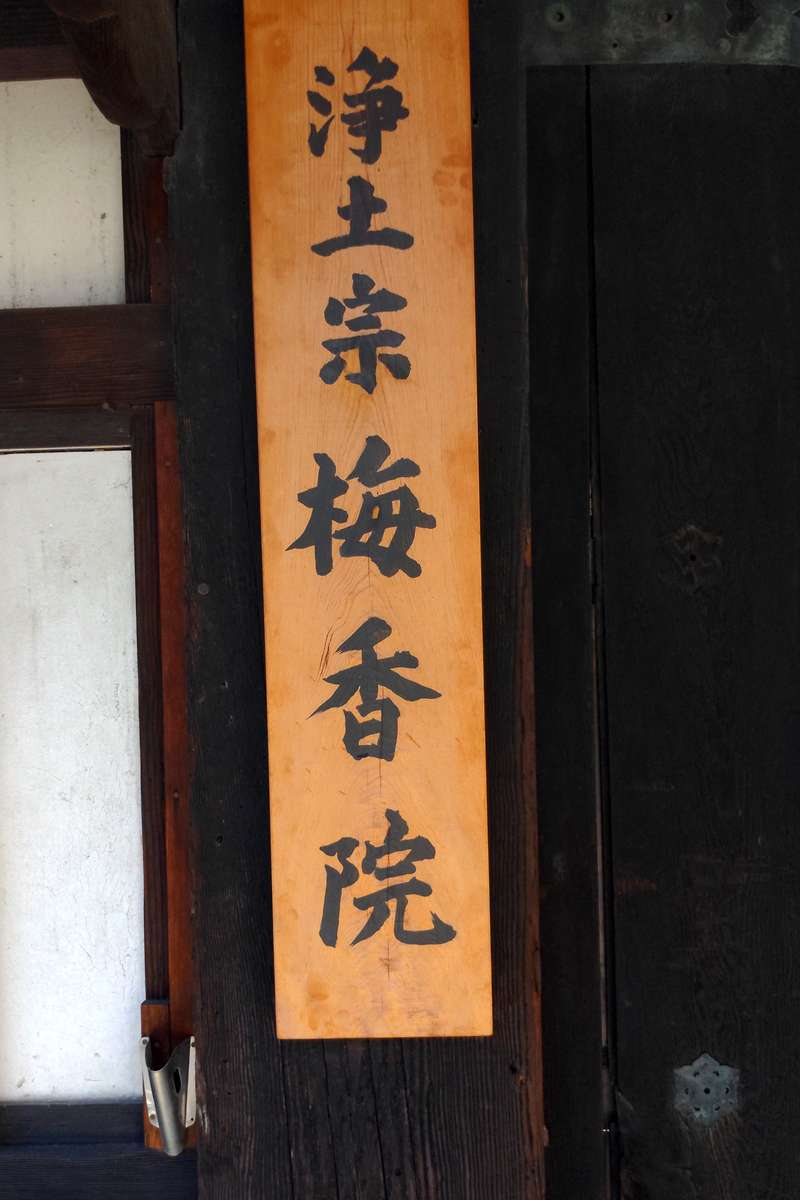 浄土宗梅香院